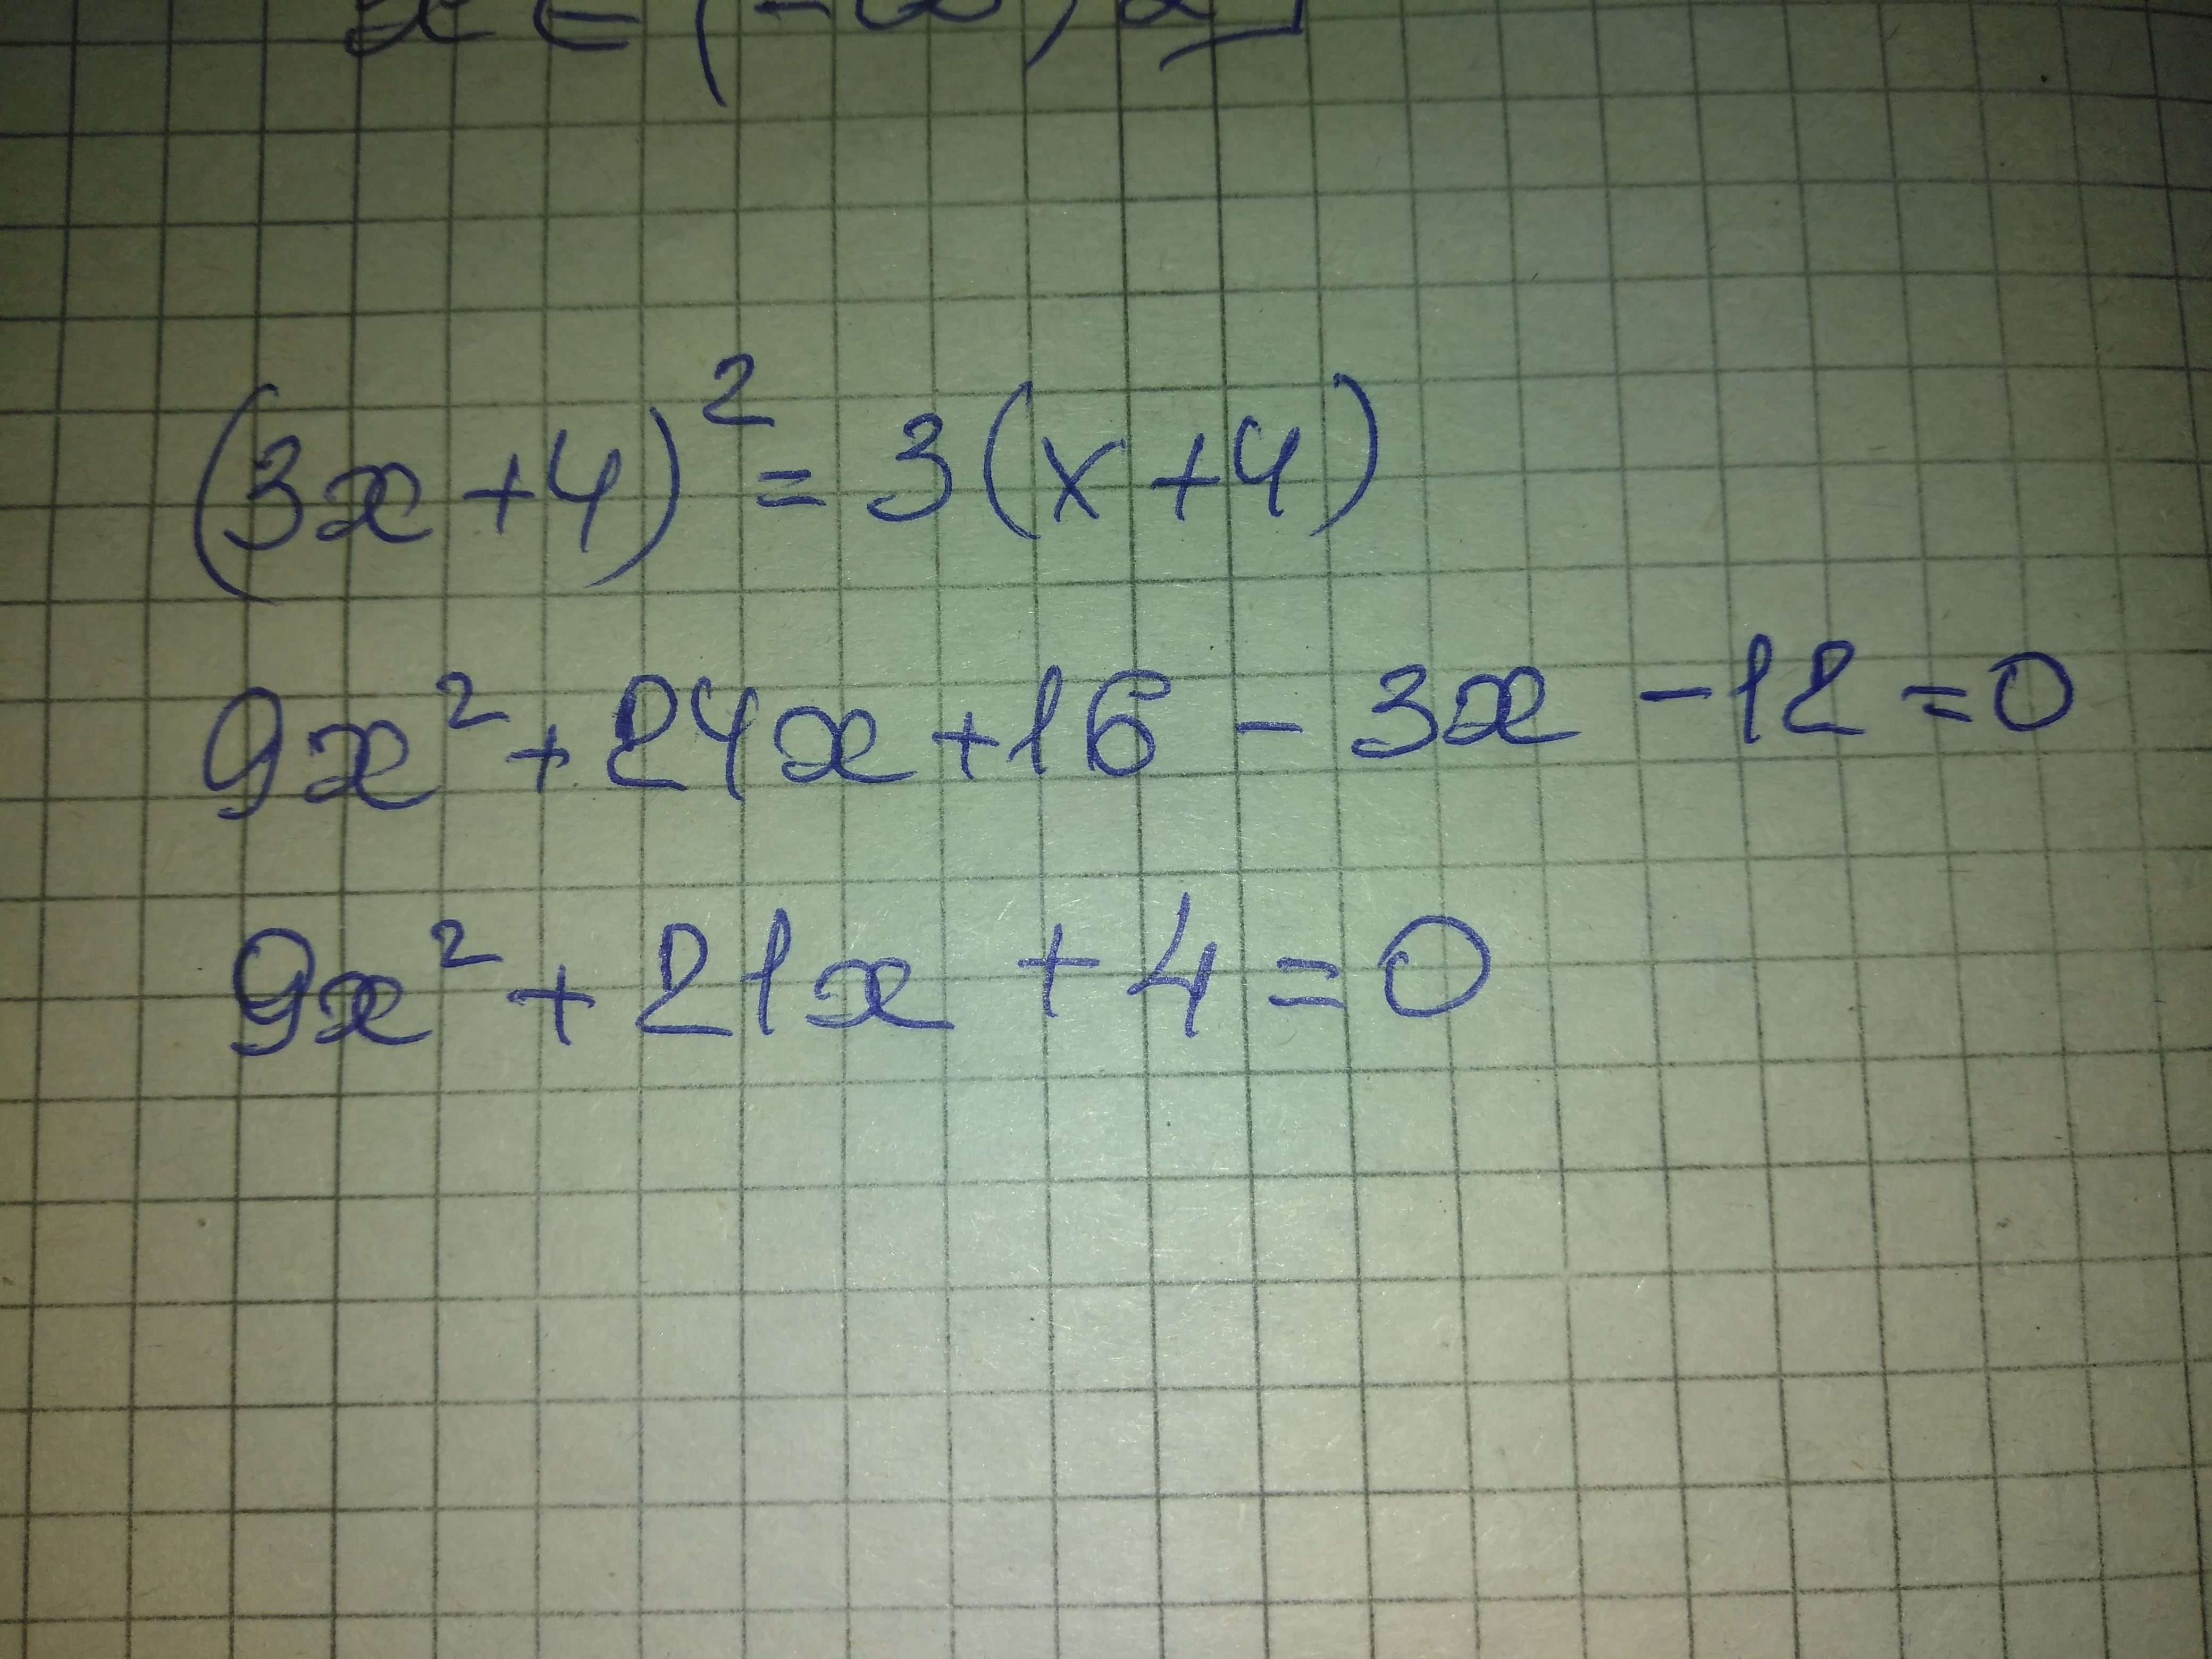 x ∈ (-∞; 2]
(3x+4)² = 3(x+4)
9x² + 24x + 16 - 3x - 12 = 0
9x² + 21x + 4 = 0